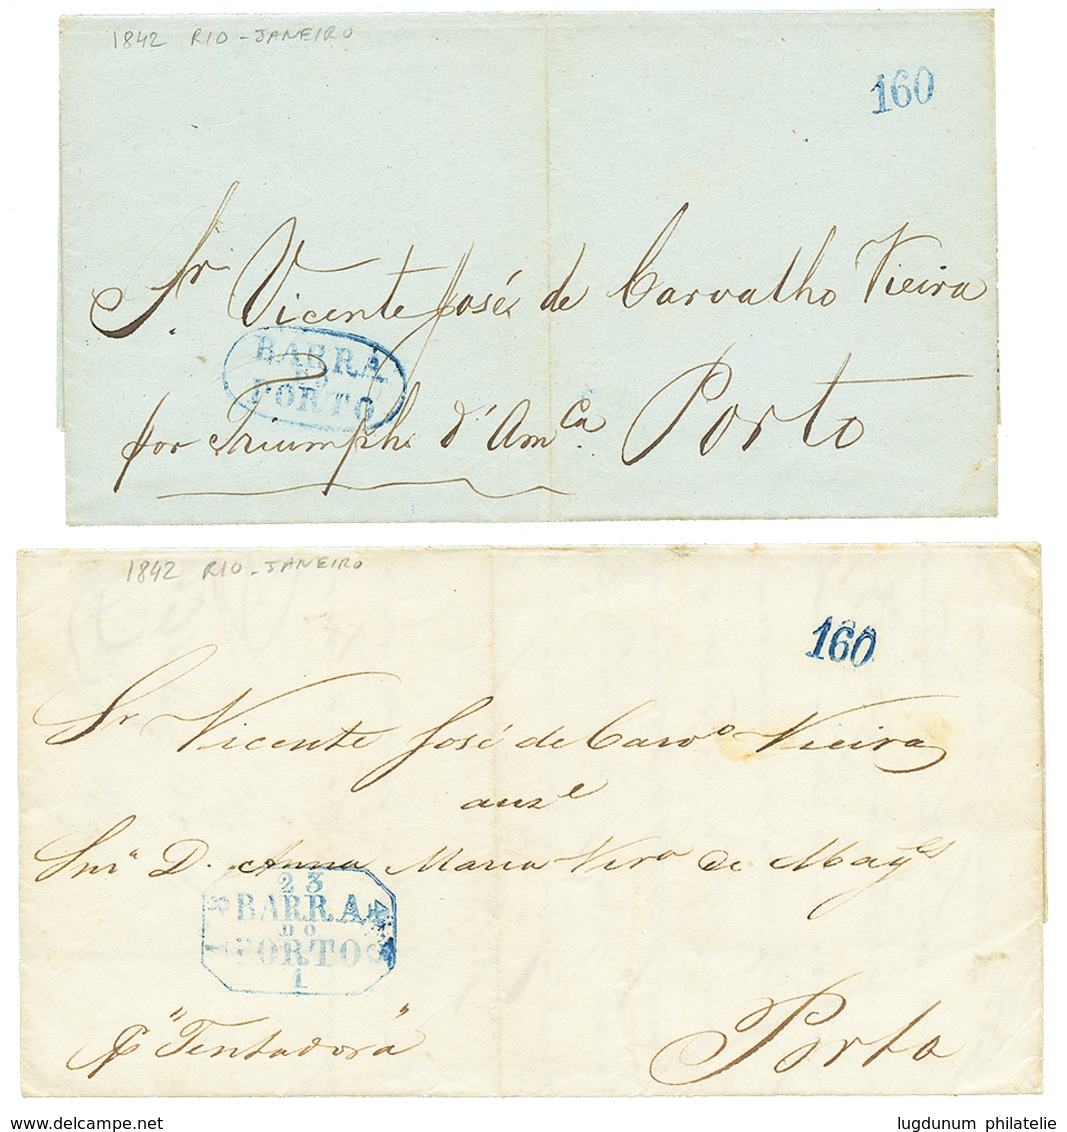 1842 RIO-JANEIRO
160
Sr. Vicente José de Carvalho Vieira
BARRA
DO
PORTO
por Triumphe d'Amca. Porto
1842 RIO-JANEIRO
160
Sr Vicente José de Carvo Vieira
auze
Snra D. Anna Maria Vira de Mages
23
BARRA
DO
PORTO
1
18 42
P "Tentadora"
Porto
delcampe.net
lugdunum philatelie